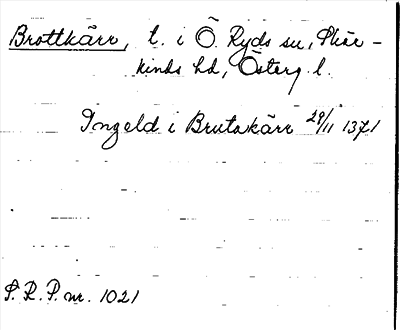 Brottkärr, l. i Ö. Ryds sn, Skär-
kinds hd, Österg. l.
Ingeld i Brutakärr 29/11 1371
S. R. P. nr. 1021